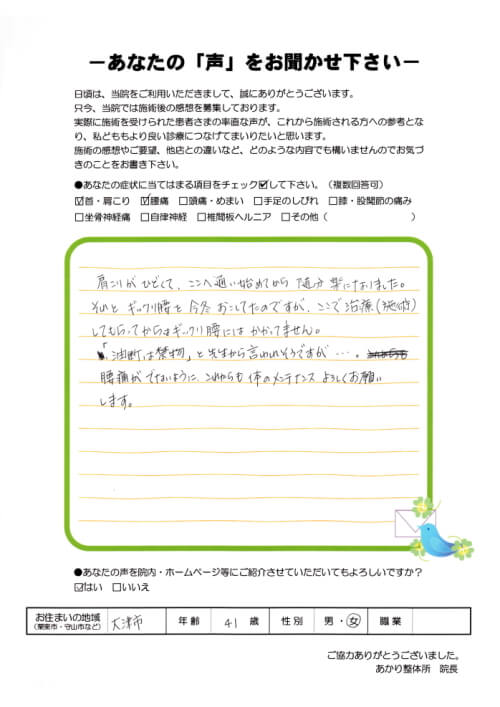 －あなたの「声」をお聞かせ下さい－
日頃は、当院をご利用いただきまして、誠にありがとうございます。
只今、当院では施術後の感想を募集しております。
実際に施術を受けられた患者さまの率直な声が、これから施術される方への参考とな
り、私どももより良い診療につなげてまいりたいと思います。
施術の感想やご要望、他店との違いなど、どのような内容でも構いませんのでお気づ
きのことをお書き下さい。
●あなたの症状に当てはまる項目をチェック☑して下さい。（複数回答可）
☑首・肩こり ☑腰痛 □頭痛・めまい □手足のしびれ □膝・股関節の痛み
□坐骨神経痛 □自律神経 □椎間板ヘルニア □その他（ ）
肩こりがひどくて、ここへ通い始めてから随分楽になりました。
それと ギックリ腰を今冬おこしてたのですが、ここで治療(施術)
してもらってからはギックリ腰にはかかってません。
「油断は禁物」と先生から言われそうですが…。
腰痛がでないように、これからも体のメンテナンス よろしくお願い
します。
●あなたの声を院内・ホームページ等にご紹介させていただいてもよろしいですか？
☑はい □いいえ
お住まいの地域 大津市 年齢 41 歳 性別 男・女 職業
（栗東市・守山市など）
ご協力ありがとうございました。
あかり整体所 院長